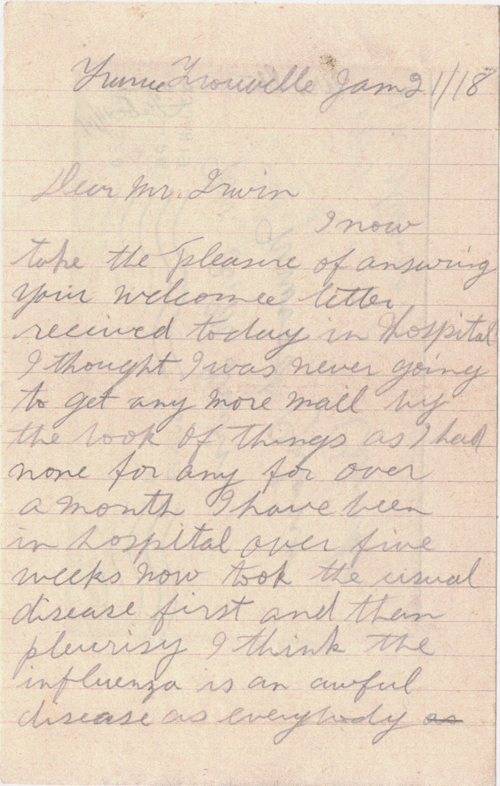 Trouville Jan 21/18
Dear Mr. Irwin
I now
take the pleasure of answering
your welcomee letter
recieved today in hospital
I thought I was never going
to get any more mail by
the look of things as I had
none for any for over
a month I have been
in hospital over five
weeks now took the usual
disease first and then
pleurisy I think the
influenza is an awful
disease as everybody as